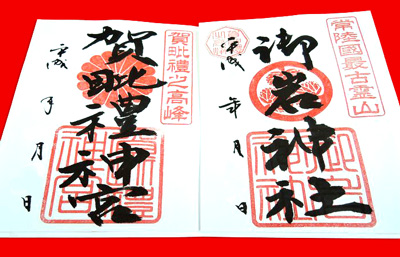 常陸國最古霊山
御岩神社
平成 年 月 日
賀毗禮之高峰
賀毗禮神宮
平成 年 月 日